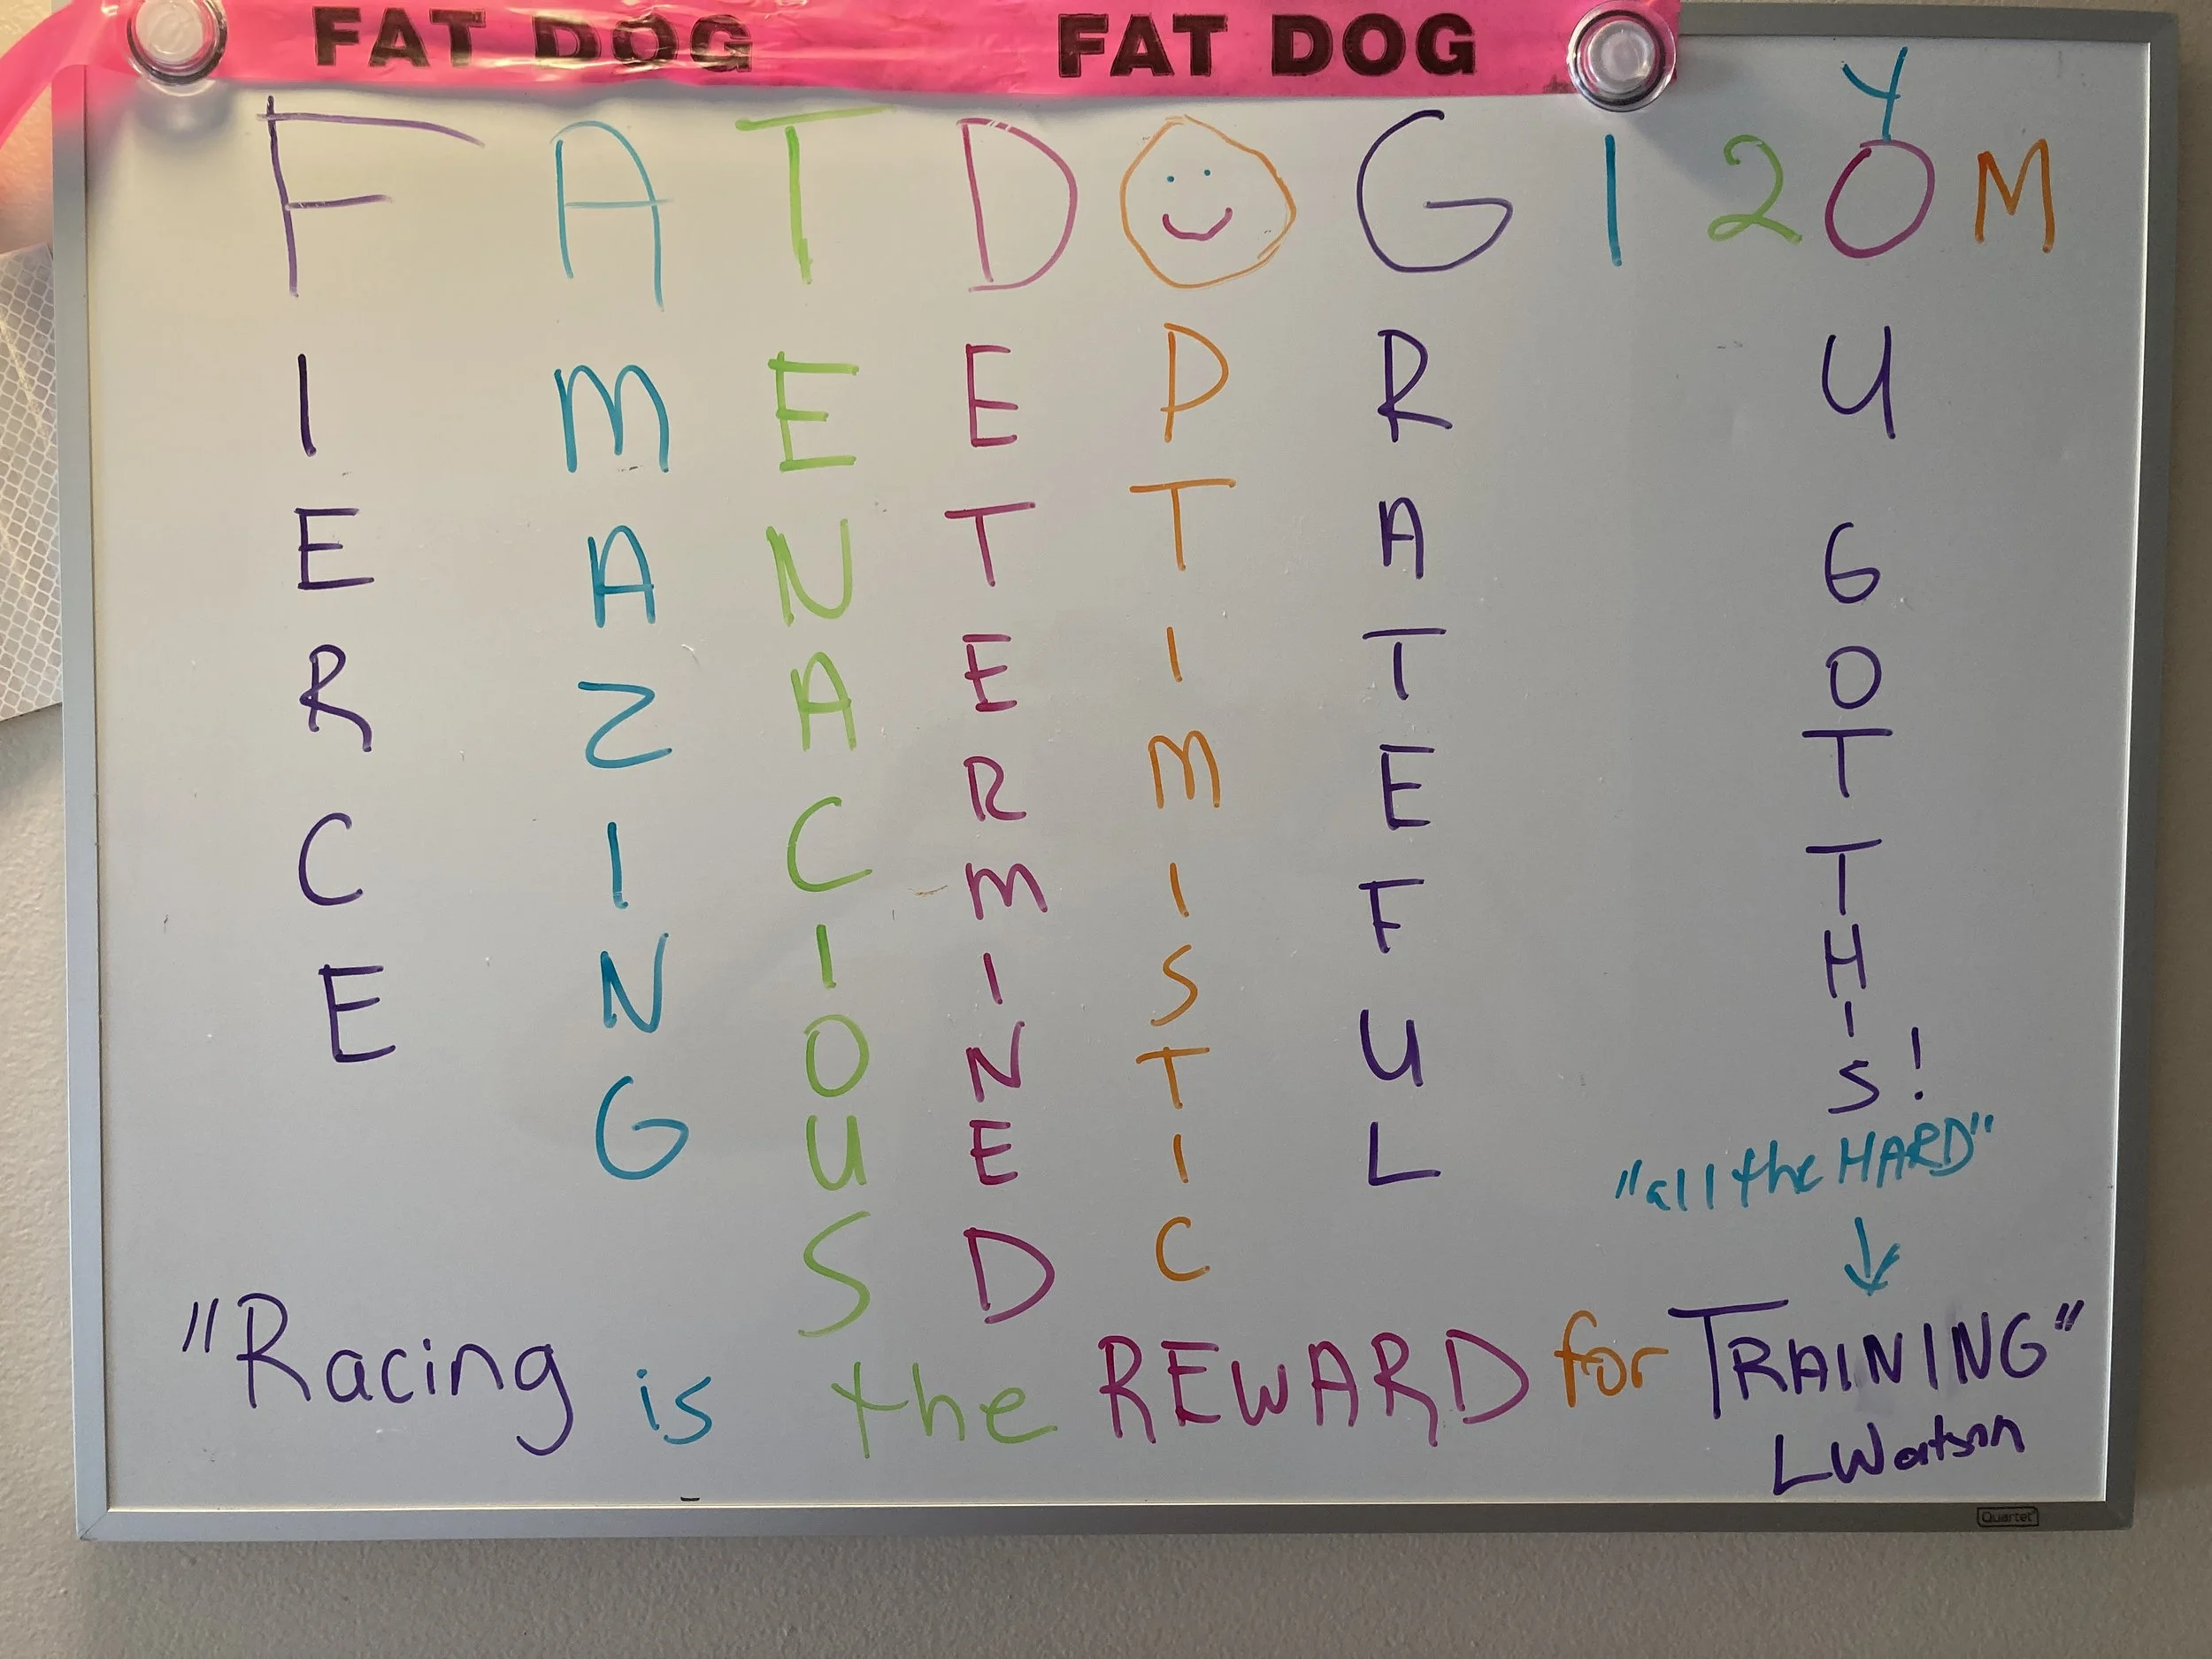 FAT DOG FAT DOG
FAT DOG 120M
FIERCE
AMAZING
TENACIOUS
DETERMINED
OPTIMISTIC
GRATEFUL
YOU GOT THIS!
"all the HARD"
"Racing is the REWARD for TRAINING"
L Watson
Quartet